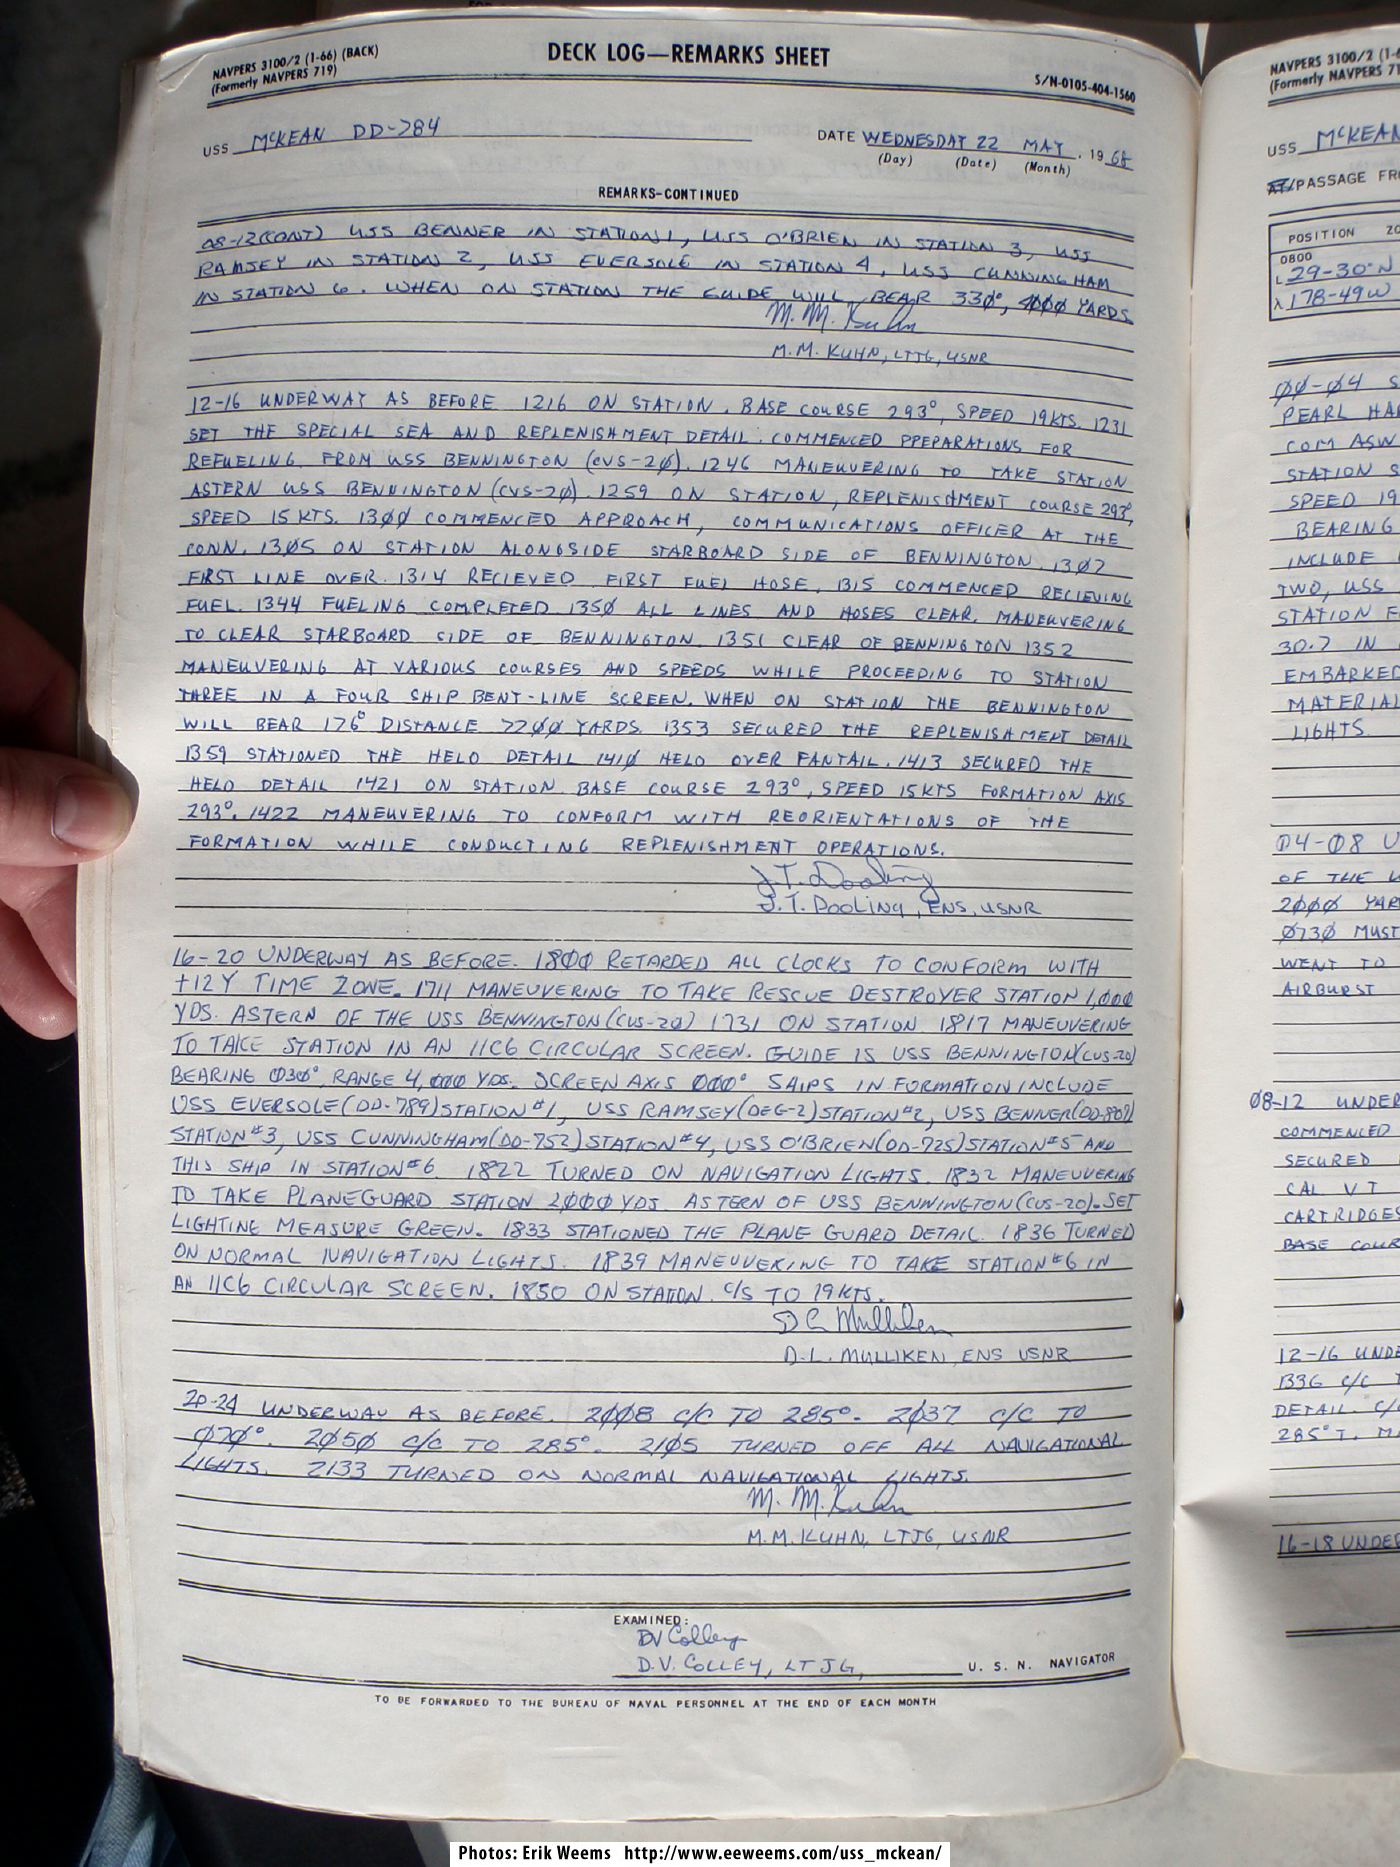 NAVPERS 3100/2 (1-66) (BACK)
(Formerly NAVPERS 719)
DECK LOG—REMARKS SHEET
S/N-0105-404-1560
USS McKEAN DD-784
DATE WEDNESDAY 22 MAY, 1968
(Day) (Date) (Month)
REMARKS-CONTINUED
08-12(CONT) USS BENNER IN STATION 1, USS O'BRIEN IN STATION 3, USS
RAMSEY IN STATION 2, USS EVERSOLE IN STATION 4, USS CUNNINGHAM
IN STATION 6. WHEN ON STATION THE GUIDE WILL BEAR 330°, 4000 YARDS
M. M. Kuhn
M.M. KUHN, LTJG, USNR
12-16 UNDERWAY AS BEFORE 1216 ON STATION. BASE COURSE 293°, SPEED 19KTS. 1231
SET THE SPECIAL SEA AND REPLENISHMENT DETAIL. COMMENCED PREPARATIONS FOR
REFUELING FROM USS BENNINGTON (CVS-20). 1246 MANEUVERING TO TAKE STATION
ASTERN USS BENNINGTON (CVS-20). 1259 ON STATION, REPLENISHMENT COURSE 293°,
SPEED 15 KTS. 1300 COMMENCED APPROACH, COMMUNICATIONS OFFICER AT THE
CONN. 1305 ON STATION ALONGSIDE STARBOARD SIDE OF BENNINGTON. 1307
FIRST LINE OVER. 1314 RECIEVED FIRST FUEL HOSE. 1315 COMMENCED RECIEVING
FUEL. 1344 FUELING COMPLETED 1350 ALL LINES AND HOSES CLEAR. MANEUVERING
TO CLEAR STARBOARD SIDE OF BENNINGTON. 1351 CLEAR OF BENNINGTON 1352
MANEUVERING AT VARIOUS COURSES AND SPEEDS WHILE PROCEEDING TO STATION
THREE IN A FOUR SHIP BENT-LINE SCREEN. WHEN ON STATION THE BENNINGTON
WILL BEAR 176° DISTANCE 7200 YARDS. 1353 SECURED THE REPLENISHMENT DETAIL
1359 STATIONED THE HELO DETAIL 1410 HELO OVER FANTAIL. 1413 SECURED THE
HELO DETAIL 1421 ON STATION BASE COURSE 293°, SPEED 15KTS FORMATION AXIS
293°. 1422 MANEUVERING TO CONFORM WITH REORIENTATIONS OF THE
FORMATION WHILE CONDUCTING REPLENISHMENT OPERATIONS.
J.T. Dooling
J.T. DOOLING, ENS, USNR
16-20 UNDERWAY AS BEFORE. 1800 RETARDED ALL CLOCKS TO CONFORM WITH
+12Y TIME ZONE. 1711 MANEUVERING TO TAKE RESCUE DESTROYER STATION 1,000
YDS. ASTERN OF THE USS BENNINGTON (CVS-20) 1731 ON STATION 1817 MANEUVERING
TO TAKE STATION IN AN 11C6 CIRCULAR SCREEN. GUIDE IS USS BENNINGTON (CVS-20)
BEARING 030°, RANGE 4,000 YDS. SCREEN AXIS 000° SHIPS IN FORMATION INCLUDE
USS EVERSOLE (DD-789) STATION #1, USS RAMSEY (DEG-2) STATION #2, USS BENNER (DD-807)
STATION #3, USS CUNNINGHAM (DD-752) STATION #4, USS O'BRIEN (DD-725) STATION #5 AND
THIS SHIP IN STATION #6. 1822 TURNED ON NAVIGATION LIGHTS. 1832 MANEUVERING
TO TAKE PLANEGUARD STATION 2000 YDS. ASTERN OF USS BENNINGTON (CVS-20). SET
LIGHTING MEASURE GREEN. 1833 STATIONED THE PLANE GUARD DETAIL. 1836 TURNED
ON NORMAL NAVIGATION LIGHTS. 1839 MANEUVERING TO TAKE STATION #6 IN
AN 11C6 CIRCULAR SCREEN. 1850 ON STATION. C/S TO 19KTS.
D L Mulliken
D.L. MULLIKEN, ENS USNR
20-24 UNDERWAY AS BEFORE. 2008 C/C TO 285°. 2037 C/C TO
070°. 2050 C/C TO 285°. 2105 TURNED OFF ALL NAVIGATIONAL
LIGHTS. 2133 TURNED ON NORMAL NAVIGATIONAL LIGHTS.
M. M. Kuhn
M.M. KUHN, LTJG, USNR
EXAMINED:
DV Colley
D.V. COLLEY, LTJG, U. S. N. NAVIGATOR
TO BE FORWARDED TO THE BUREAU OF NAVAL PERSONNEL AT THE END OF EACH MONTH
NAVPERS 3100/2 (1-6
(Formerly NAVPERS 71
USS McKEAN
AT/PASSAGE FR
POSITION ZO
0800
L 29-30-N
λ 178-49W
00-04 S
PEARL HA
COM ASW
STATION S
SPEED 19
BEARING
INCLUDE
TWO, USS
STATION F
30.7 IN
EMBARKED
MATERIAL
LIGHTS
04-08 U
OF THE U
2000 YAR
0730 MUST
WENT TO
AIRBURST
08-12 UNDER
COMMENCED
SECURED
CAL VT
CARTRIDGES
BASE COUR
12-16 UNDE
1336 C/C T
DETAIL. C/
285°T. M
16-18 UNDER
Photos: Erik Weems http://www.eeweems.com/uss_mckean/